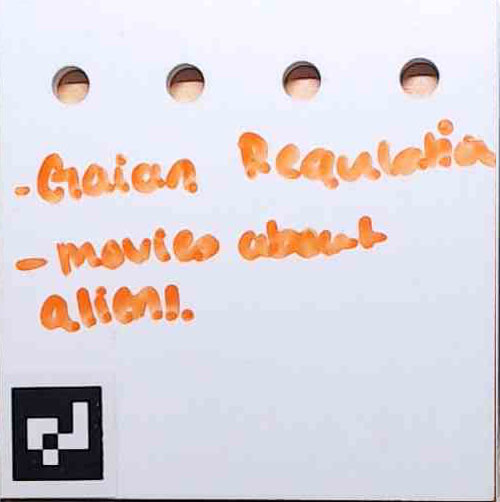 - Gaian Regulation
- movies about
aliens.